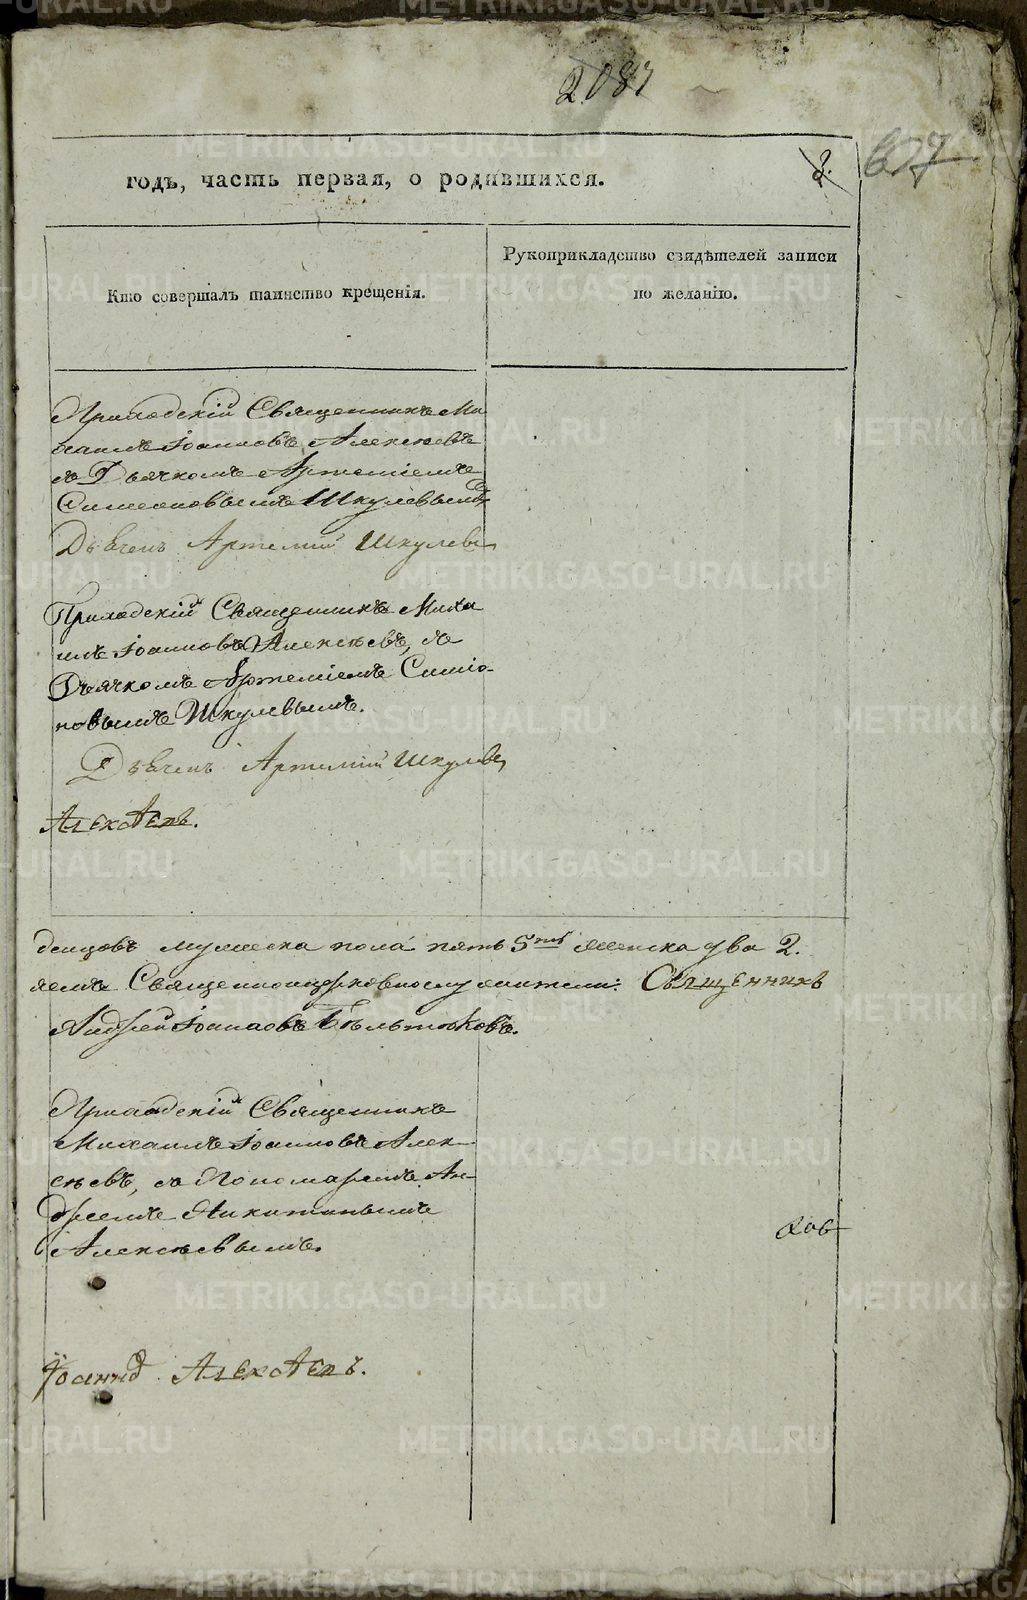 2081
607
годъ, часть первая, о родившихся.
2.
Кто совершалъ таинство крещенія.
Рукоприкладство свидѣтелей записи
по желанію.
Приходскій Священникъ Ми
хаилъ Іоанновъ Алексѣевъ
съ Дьячкомъ Артеміемъ
Симеоновымъ Шкулевымъ
Дьячекъ Артемій Шкулевъ
Приходскій Священникъ Миха
илъ Іоанновъ Алексѣевъ, съ
Дьячкомъ Артеміемъ Симіо-
новымъ Шкулевымъ.
Дьячекъ Артемій Шкулевъ
денцовъ мужеска пола пять 5 женска два 2.
Священноцерковнослужители: Священникъ
Андрей Іоанновъ Бѣльтюковъ.
Приходскій Священникъ
Михаилъ Іоанновъ Алек-
сѣевъ, съ Пономаремъ Ан-
дреемъ Никитинымъ
Алексѣевымъ.
Іоаннъ
METRIKI.GASO-URAL.RU